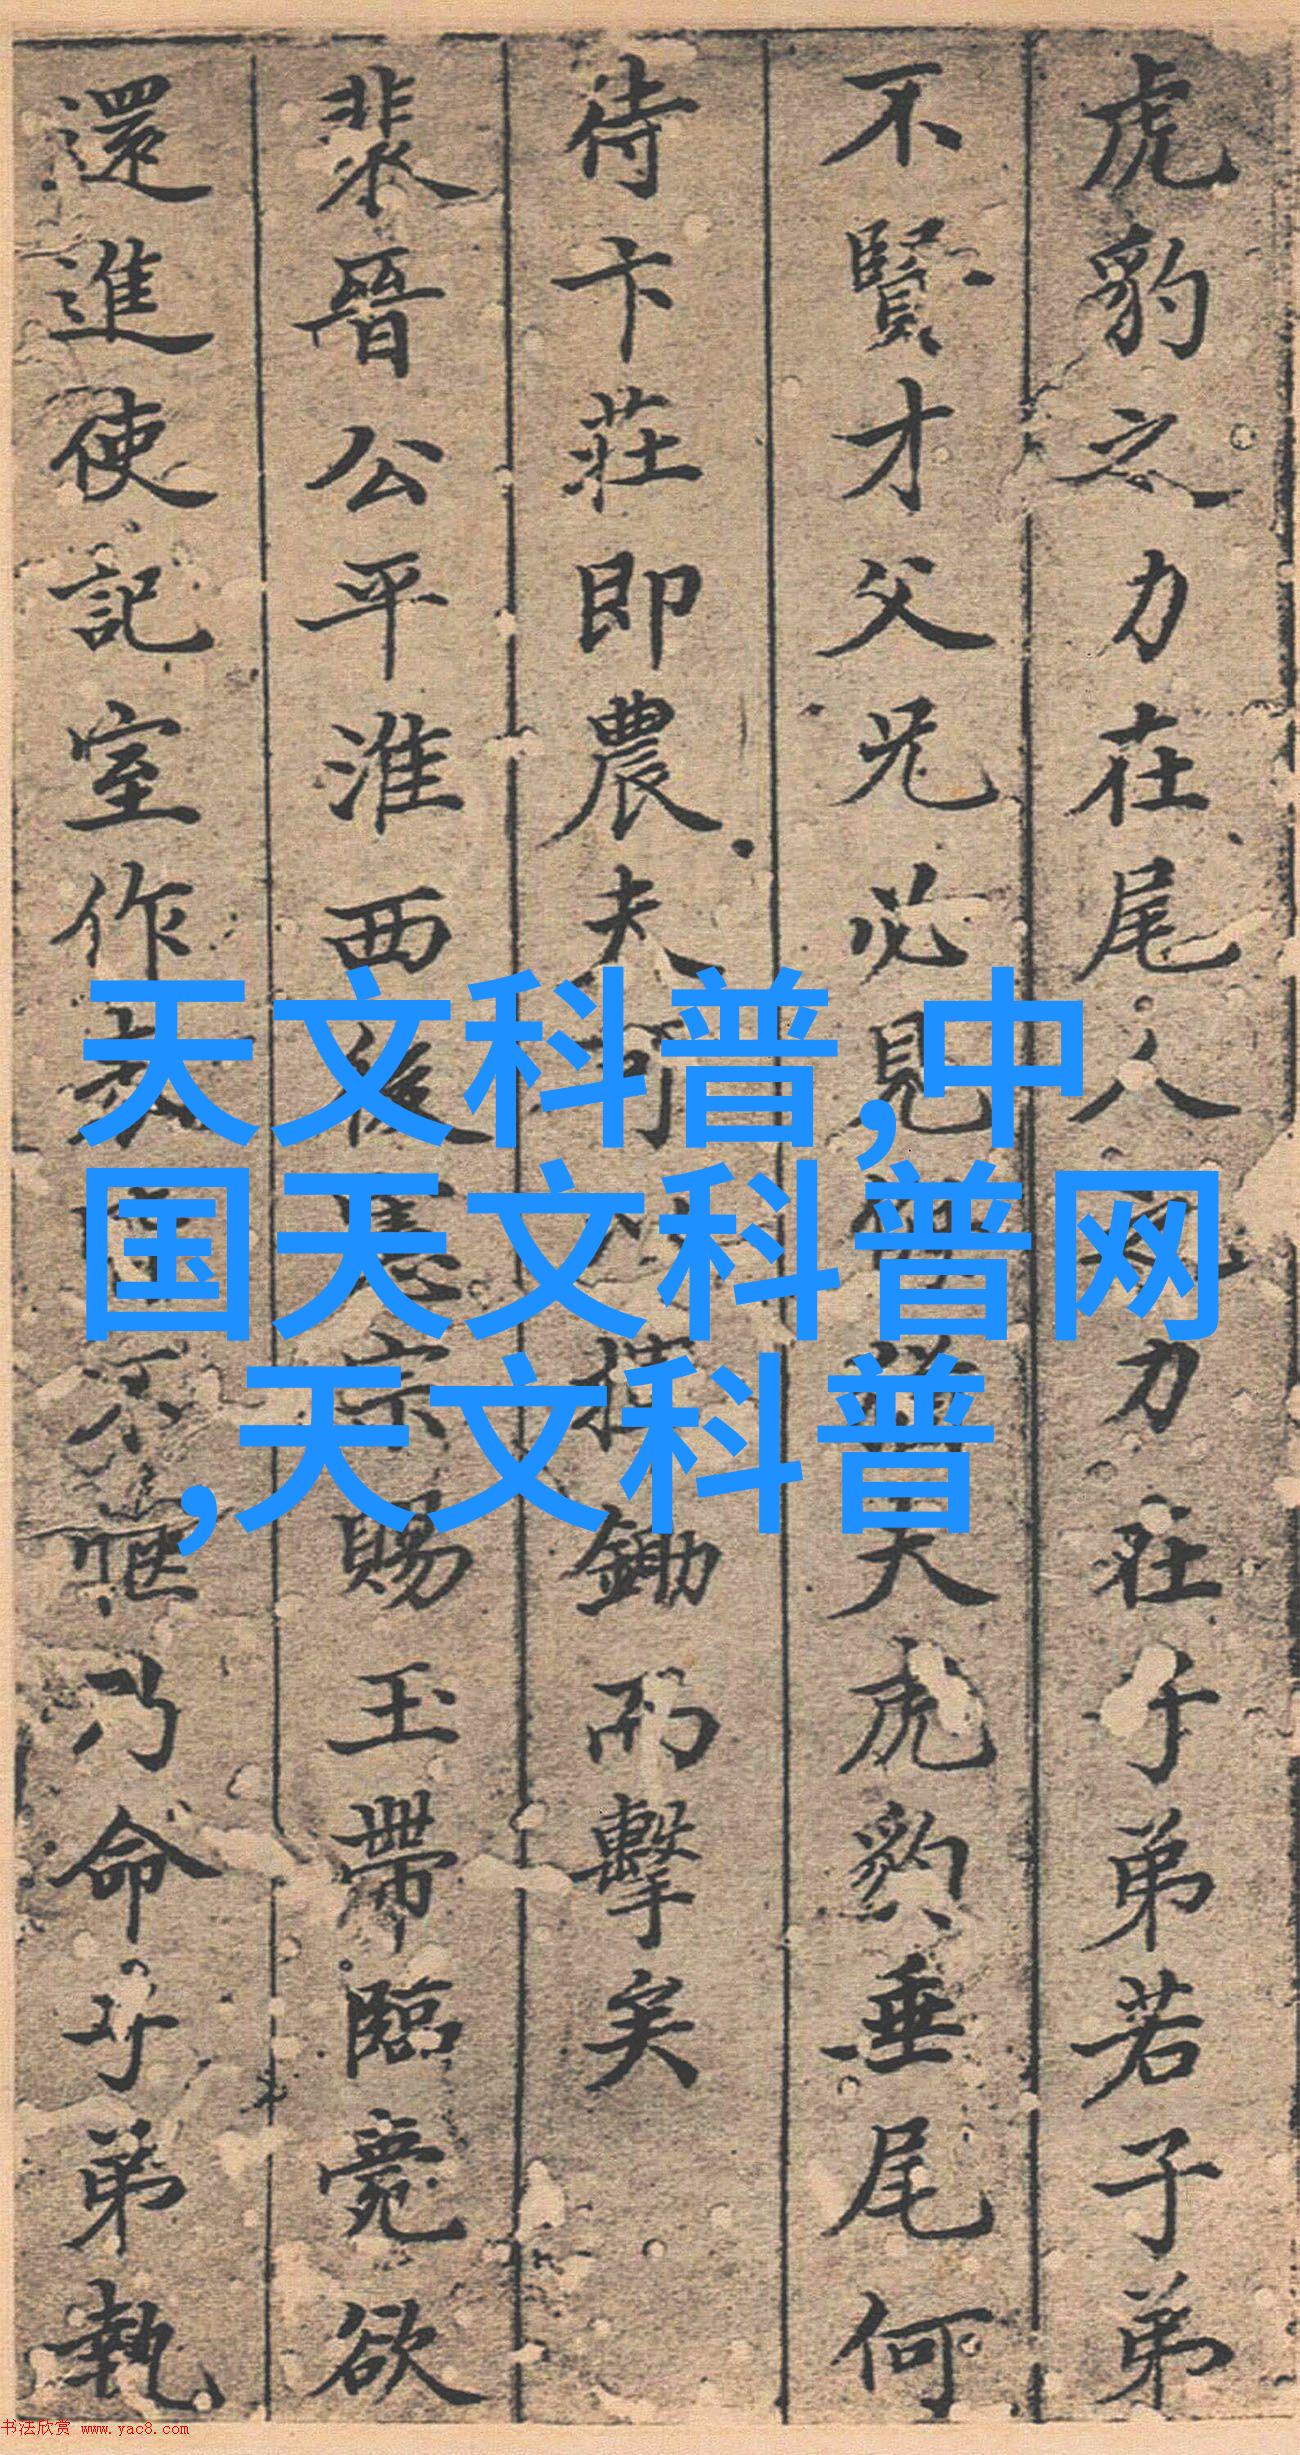 虎豹之力在尾人之力在子弟若子弟
不賢才父兄必見大虎豹垂尾何
待卞莊即農夫可以持鋤而擊矣
裴晉公平淮西後憲宗賜玉帶臨薨欲
還進使記室作表皆不愜乃命子弟執
天文科普,中
国天文科普网
,天文科普
书法欣赏 www.yac8.com